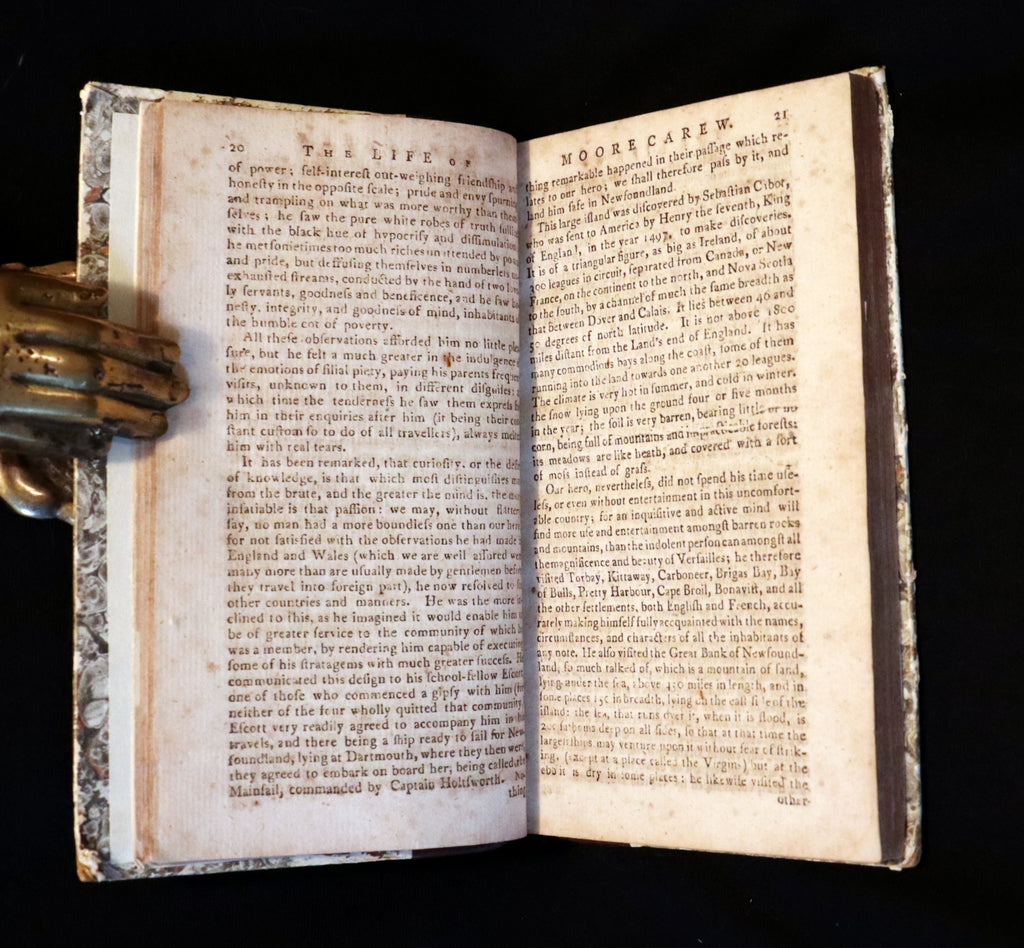 20
THE LIFE OF
of power; ſelf-intereſt out-weighing friendſhip and
honeſty in the oppoſite ſcale; pride and envy ſpurning
and trampling on what was more worthy than them
ſelves; he ſaw the pure white robes of truth ſullied
with the black hue of hypocriſy and diſſimulation
he met ſometimes too much riches unattended by pomp
and pride, but diffuſing themſelves in numberleſs
exhauſted ſtreams, conducted by the hand of two
ly ſervants, goodneſs and beneficence, and he ſaw
neſty, integrity, and goodneſs of mind, inhabitants
the humble cot of poverty.
All theſe obſervations afforded him no little
ſure, but he felt a much greater in the indulgence
the emotions of filial piety, paying his parents
viſits, unknown to them, in different diſguiſes;
which time the tenderneſs he ſaw them expreſs
him in their enquiries after him (it being their
ſtant cuſtom ſo to do of all travellers), always
him with real tears.
It has been remarked, that curioſity, or the
of knowledge, is that which moſt diſtinguiſhes
from the brute, and the greater the mind is, the
inſatiable is that paſſion: we may, without
ſay, no man had a more boundleſs one than our
for not ſatisfied with the obſervations he had made
England and Wales (which we are well aſſured
many more than are uſually made by gentlemen
they travel into foreign part), he now reſolved
other countries and manners. He was the more
clined to this, as he imagined it would enable him
be of greater ſervice to the community of which
was a member, by rendering him capable of
ſome of his ſtratagems with much greater ſucceſs.
communicated this deſign to his ſchool-fellow Eſcott
one of thoſe who commenced a gipſy with him
neither of the four wholly quitted that community
Eſcott very readily agreed to accompany him in
travels, and there being a ſhip ready to ſail for New
foundland, lying at Dartmouth, where they then
they agreed to embark on board her, being called
Mainſail, commanded by Captain Holtſworth. No
thing
21
MOORE CAREW.
thing remarkable happened in their paſſage which re-
lates to our hero; we ſhall therefore paſs by it, and
land him ſafe in Newfoundland.
This large iſland was diſcovered by Sebaſtian Cabot,
who was ſent to America by Henry the ſeventh, King
of England, in the year 1497, to make diſcoveries.
It is of a triangular figure, as big as Ireland, of about
300 leagues in circuit, ſeparated from Canada, or New
France, on the continent to the north, and Nova Scotia
to the ſouth, by a channel of much the ſame breadth as
that between Dover and Calais. It lies between 46 and
50 degrees of north latitude. It is not above 1800
miles diſtant from the Land's end of England. It has
many commodious bays along the coaſt, ſome of them
running into the land towards one another 20 leagues.
The climate is very hot in ſummer, and cold in winter,
the ſnow lying upon the ground four or five months
in the year; the ſoil is very barren, bearing little or no
corn, being full of mountains and impracticable foreſts;
its meadows are like heath, and covered with a ſort
of moſs inſtead of graſs.
Our hero, nevertheleſs, did not ſpend his time uſe-
leſs, or even without entertainment in this uncomfort-
able country; for an inquiſitive and active mind will
find more uſe and entertainment amongſt barren rocks
and mountains, than the indolent perſon can amongſt all
the magnificence and beauty of Verſailles; he therefore
viſited Torbay, Kittaway, Carboneer, Brigas Bay, Bay
of Bulls, Pretty Harbour, Cape Broil, Bonaviſt, and all
the other ſettlements, both Engliſh and French, accu-
rately making himſelf fully acquainted with the names,
circumſtances, and characters of all the inhabitants of
any note. He alſo viſited the Great Bank of Newfound-
land, ſo much talked of, which is a mountain of ſand,
lying under the ſea, above 450 miles in length, and in
ſome places 150 in breadth, lying on the eaſt ſide of the
iſland: the ſea, that runs over it, when it is flood, is
200 fathoms deep on all ſides, ſo that at that time the
largeſt ſhips may venture upon it without fear of ſtrik-
ing, (except at a place called the Virgins) but at the
ebb it is dry in ſome places: he likewiſe viſited the
other-